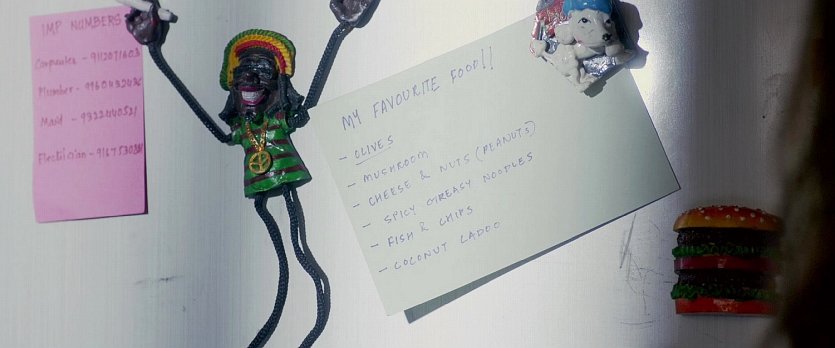 IMP NUMBERS
Carpenter - 9112071603
Plumber -
Maid -
Electrician -
MY FAVOURITE FOOD!!
- OLIVES
- MUSHROOM
- CHEESE & NUTS (PEANUTS)
- SPICY GREASY NOODLES
- FISH & CHIPS
- COCONUT LADOO